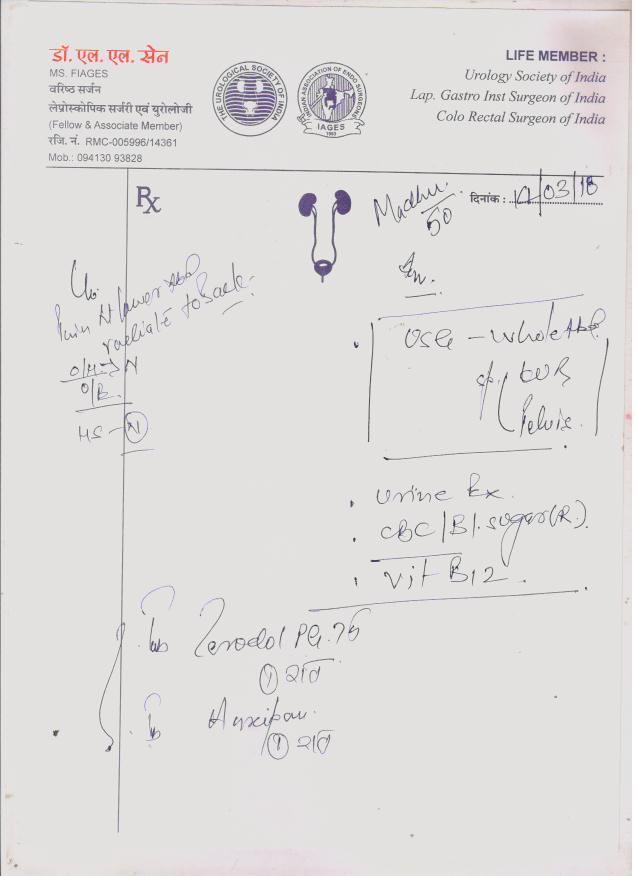 डॉ. एल. एल. सेन
MS. FIAGES
वरिष्ठ सर्जन
लेप्रोस्कोपिक सर्जरी एवं युरोलोजी
(Fellow & Associate Member)
रजि. नं. RMC-005996/14361
Mob.: 094130 93828
THE UROLOGICAL SOCIETY OF INDIA
INDIAN ASSOCIATION OF ENDO SURGEONS
IAGES
1993
LIFE MEMBER :
Urology Society of India
Lap. Gastro Inst Surgeon of India
Colo Rectal Surgeon of India
Rx
Madhu
50
दिनांक : 03/18
Pain At lower Abd
radiate to Back
O/H → N
O/B
HS - N
USG - Whole Abd
KUB
Pelvis
Urine Ex.
CBC / Bl. sugar (R).
Vit B12.
Tab Zerodol PG. 75
1 रात
Tab
1 रात